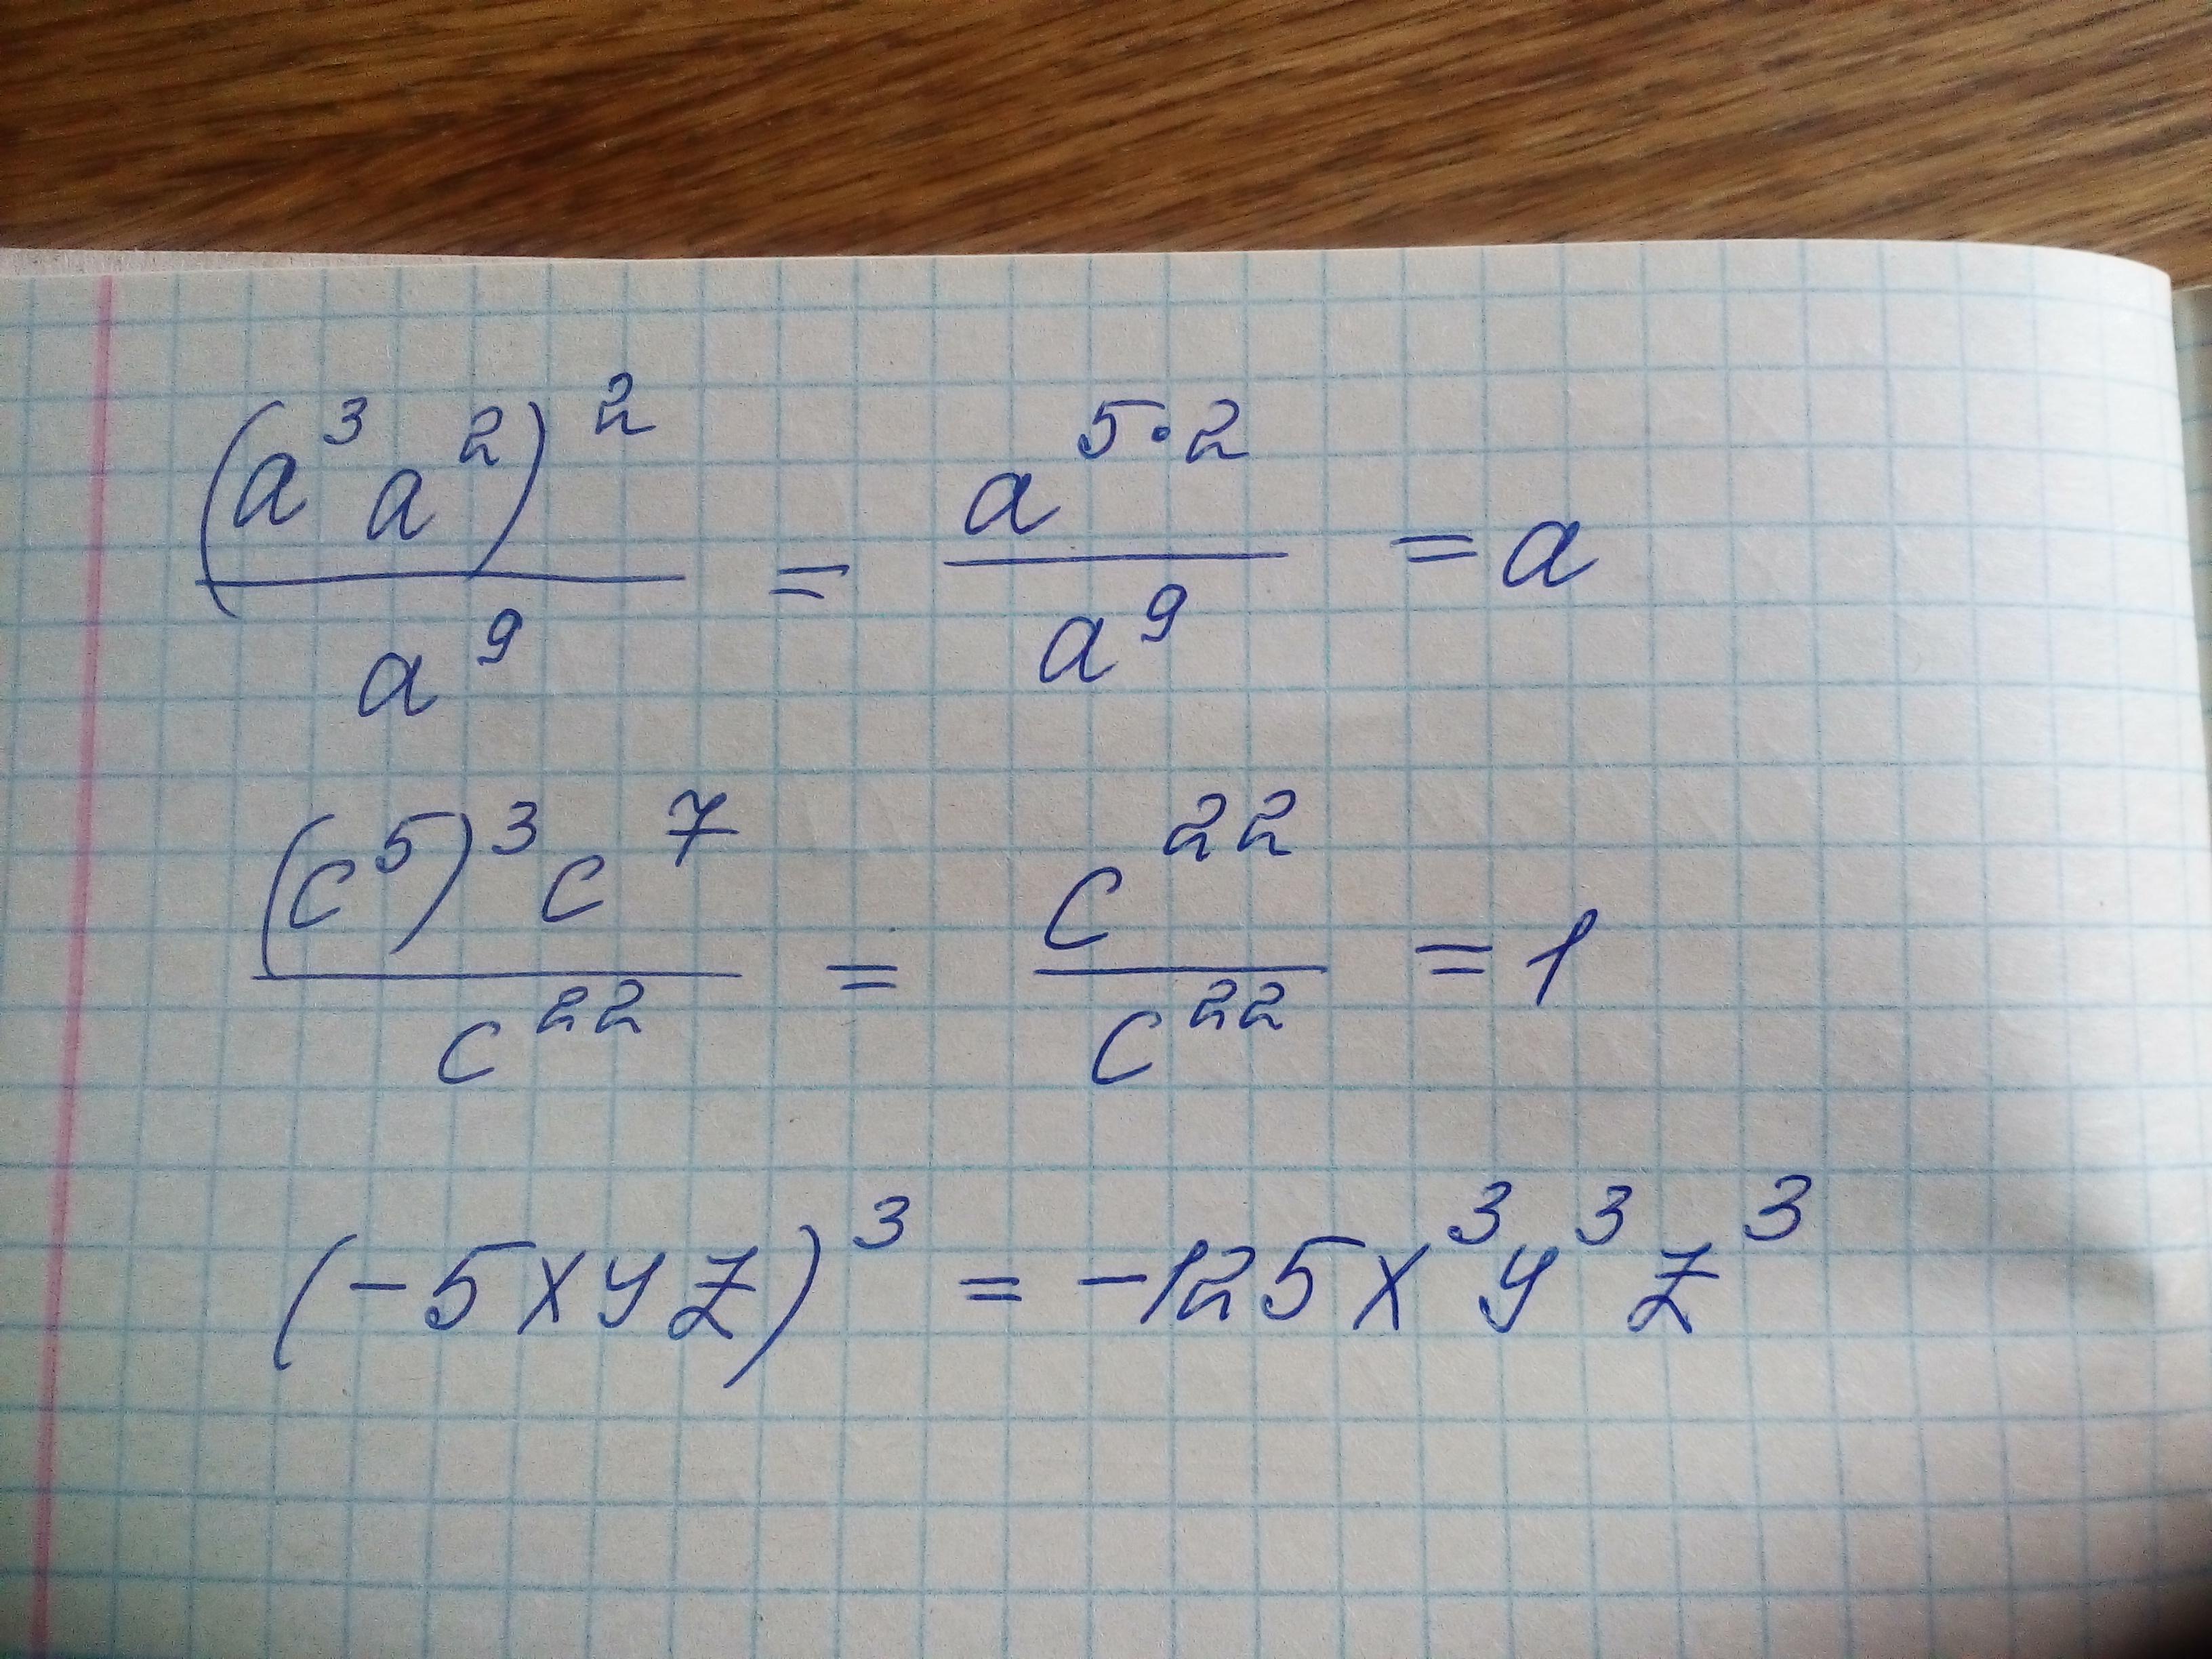 (a³a²)²/a⁹ = a⁵·²/a⁹ = a
(c⁵)³c⁷/c²² = c²²/c²² = 1
(-5xyz)³ = -125x³y³z³